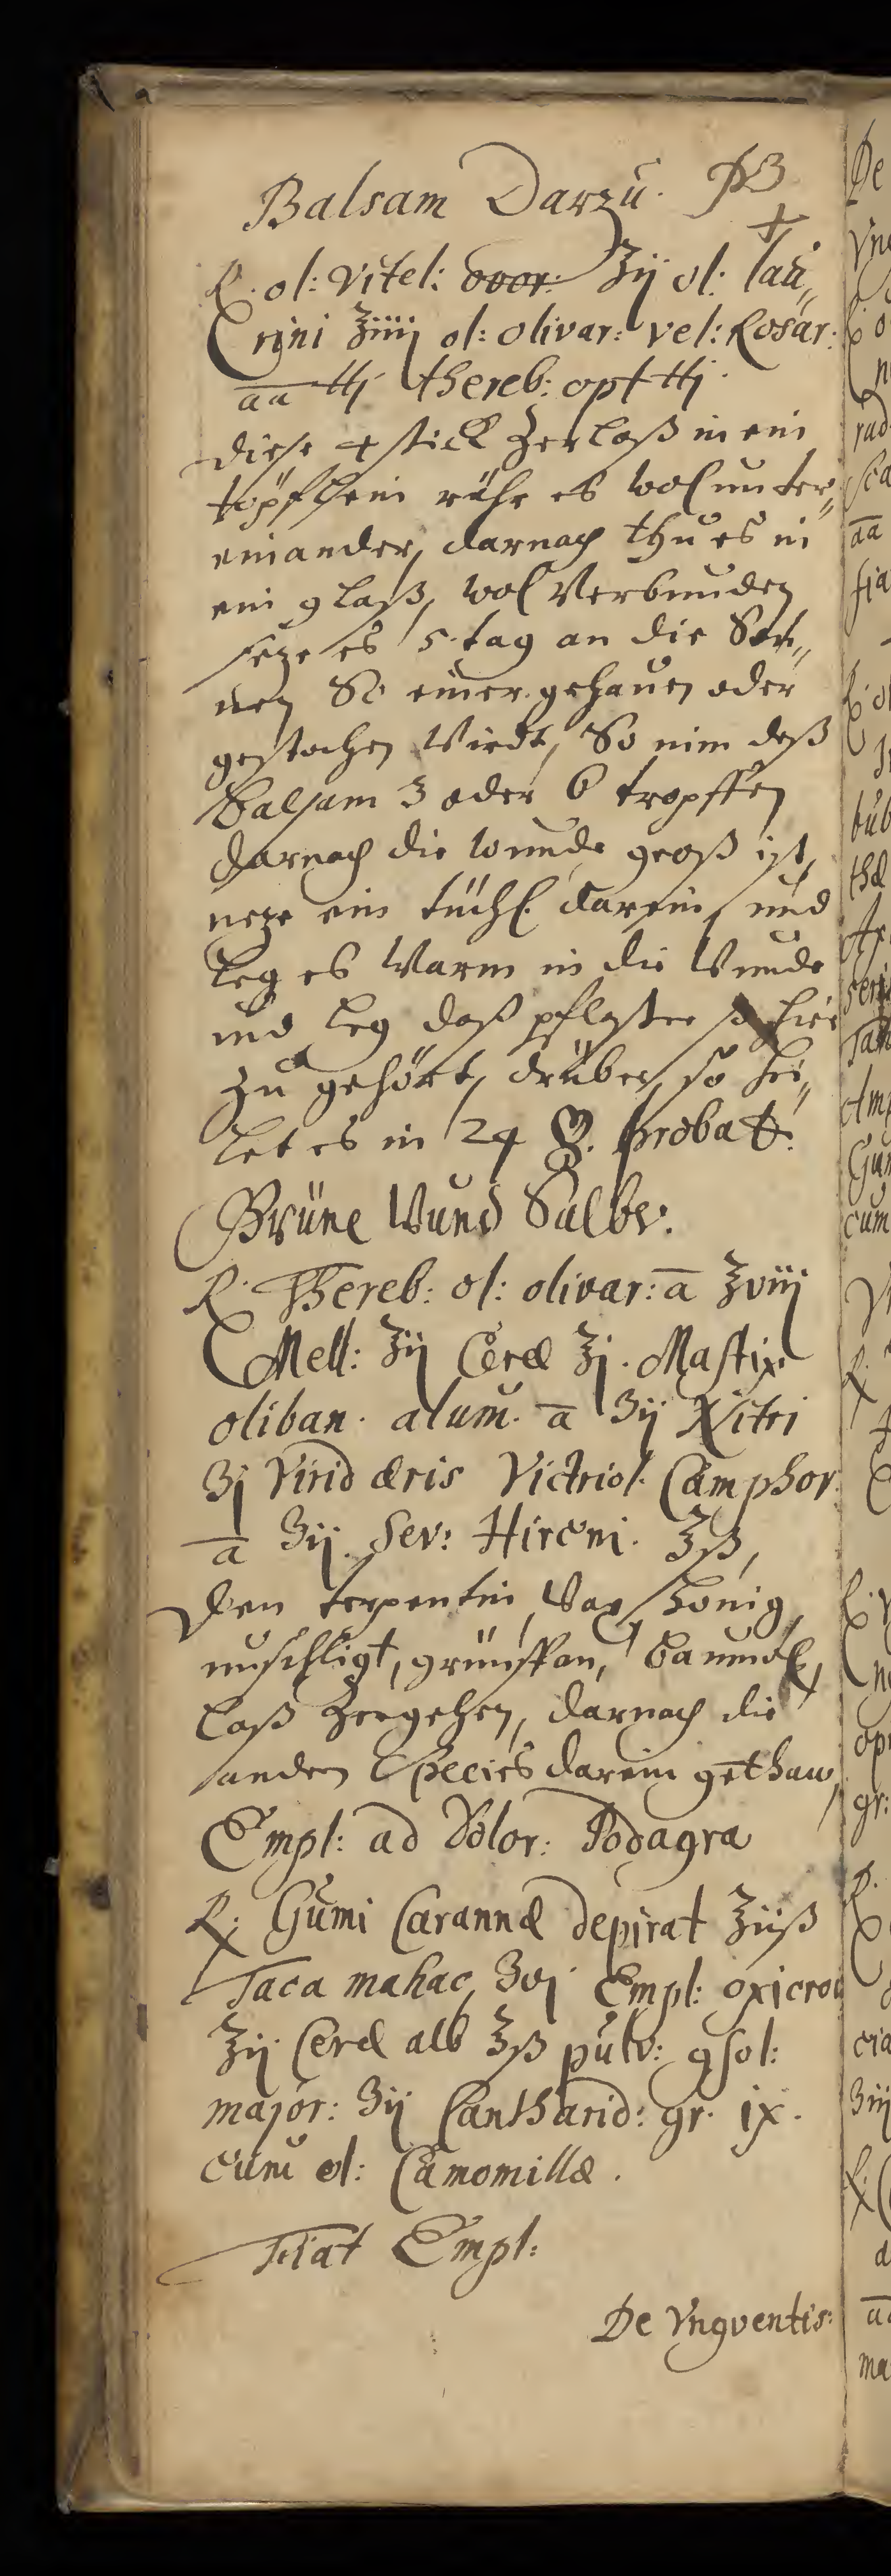 Balsam Darzu. PB
+
R. ol: Vitel: ovor: ℥ij ol: lau„
rini ℥iiij ol: olivar: vel: Rosar:
aa ℔j thereb: opt ℔j
diese 4 stick Zerlaß in ein
töpflein rühr es wol unter„
einander, darnach thu es in
ein glaß, wol Verbunden
seze es 5 tag an die Son„
nen So einer gehauen oder
gestochen Wirdt, So nim deß
Balsam 3 oder 6 tropffen
darnach die wunde groß ist,
neze ein tüchl. darein, und
leg es Warm in die Wunde
und leg daß pflaster so hie
zu gehört, drüber, so hei„
let es in 24 probat.
Grüne Wund Salbe.
R. Thereb: ol: olivar: a ℥viij
Mell: ℥ij Ceræ ℥j. Mastix
oliban. alum. a ʒij Nitri
ʒj Virid æris Victriol. Camphor.
a ʒij. Sev: Hirceni. ℥ß,
Den terpentin, Wax, honig,
unschligt, grünspan, baumöl,
laß Zergehen, darnach die
andern Species darein gethan,
Empl: ad Dolor: Podagra
R. Gumi Carannæ depirat ℥iiß
Tacamahac, ʒvj Empl: oxicroc
℥ij Ceræ alb ℥ß pulv: gsol:
major: ʒij Cantharid: gr. ix.
cum ol: Camomillæ.
Fiat Empl:
De Yngventis: